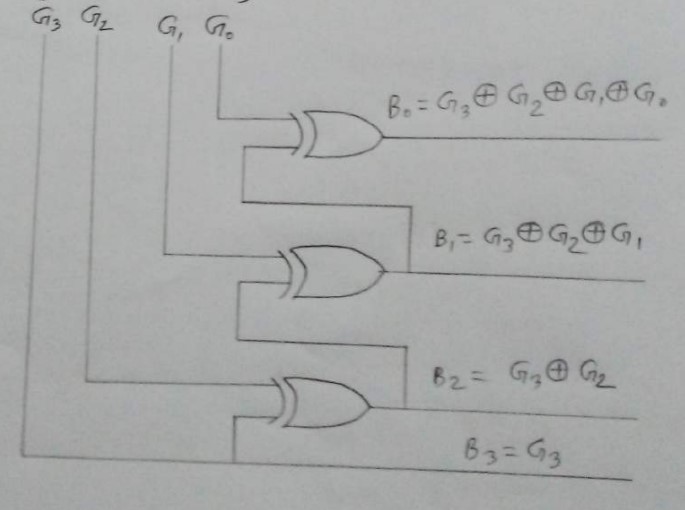 G₃ G₂ G₁ G₀
B₀ = G₃ ⊕ G₂ ⊕ G₁ ⊕ G₀
B₁ = G₃ ⊕ G₂ ⊕ G₁
B₂ = G₃ ⊕ G₂
B₃ = G₃